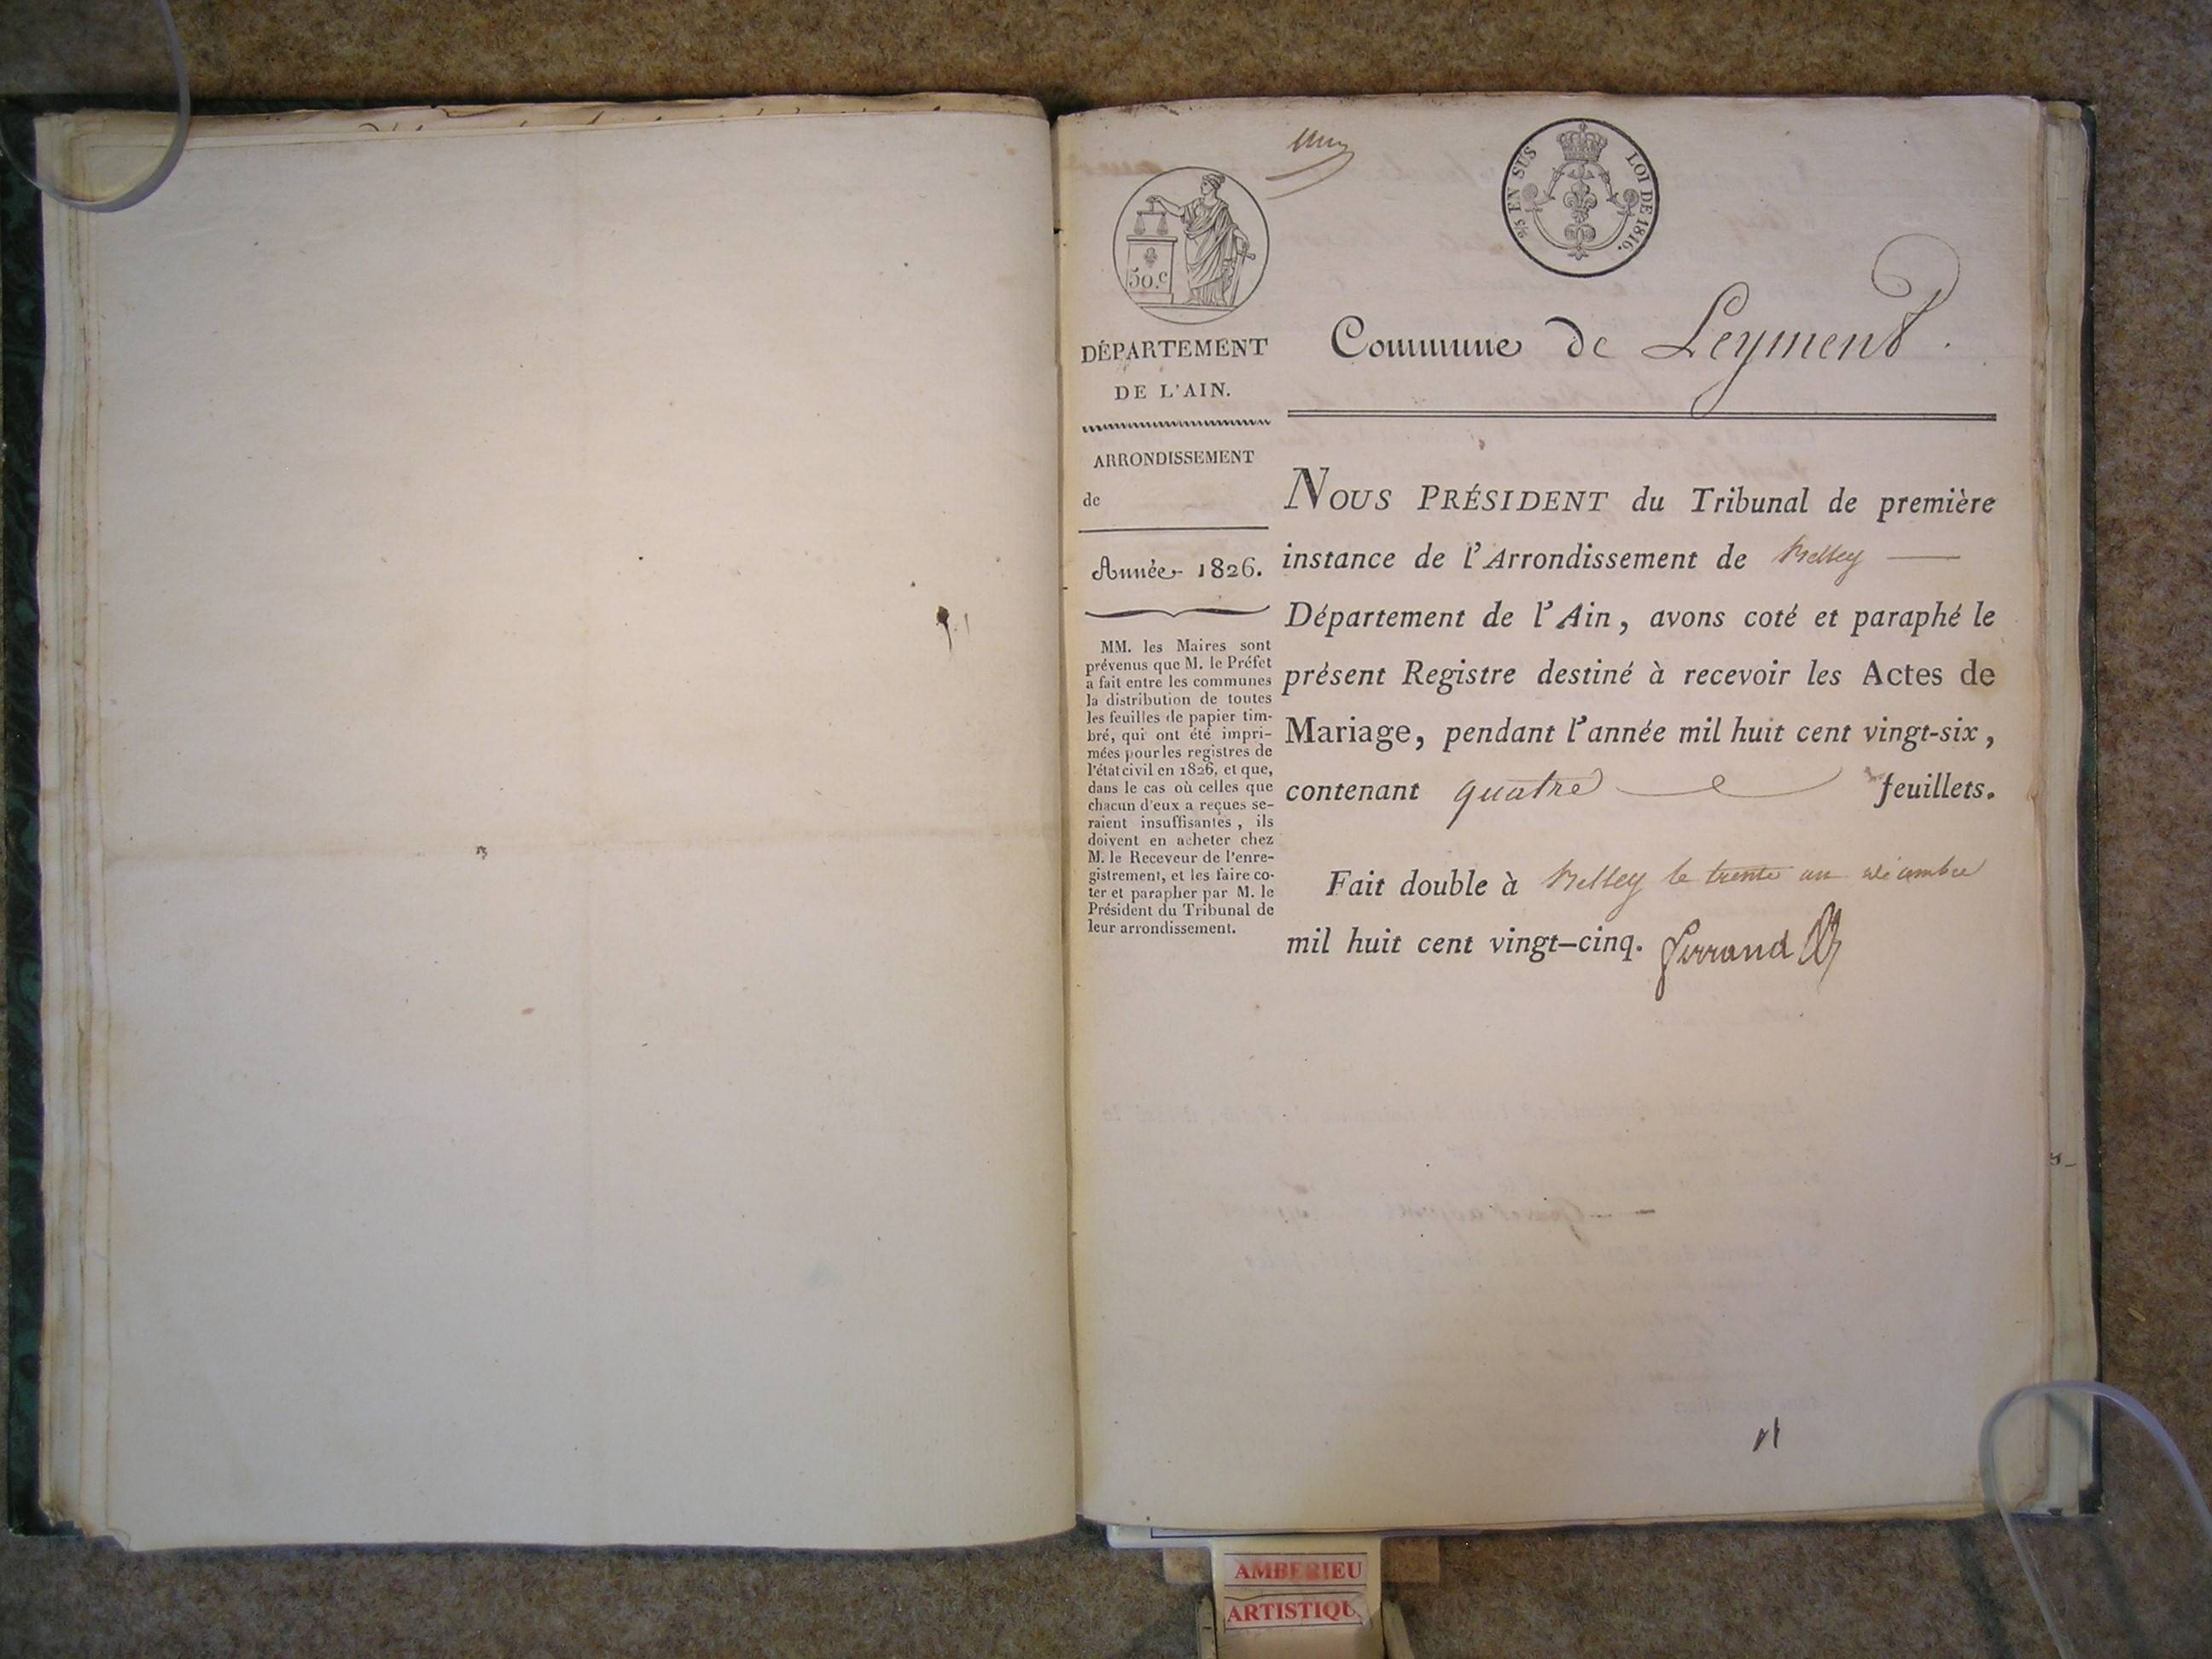 un
2/5 EN SUS
LOI DE 1816.
50.c
DÉPARTEMENT
DE L'AIN.
ARRONDISSEMENT
de
Année 1826.
MM. les Maires sont
prévenus que M. le Préfet
a fait entre les communes
la distribution de toutes
les feuilles de papier tim-
bré, qui ont été impri-
mées pour les registres de
l'état civil en 1826, et que,
dans le cas où celles que
chacun d'eux a reçues se-
raient insuffisantes, ils
doivent en acheter chez
M. le Receveur de l'enre-
gistrement, et les faire co-
ter et parapher par M. le
Président du Tribunal de
leur arrondissement.
Commune de Leyment.
NOUS PRÉSIDENT du Tribunal de première
instance de l'Arrondissement de Belley
Département de l'Ain, avons coté et paraphé le
présent Registre destiné à recevoir les Actes de
Mariage, pendant l'année mil huit cent vingt-six,
contenant quatre feuillets.
Fait double à Belley le trente un décembre
mil huit cent vingt-cinq. Ferrand
AMBERIEU
ARTISTIQU